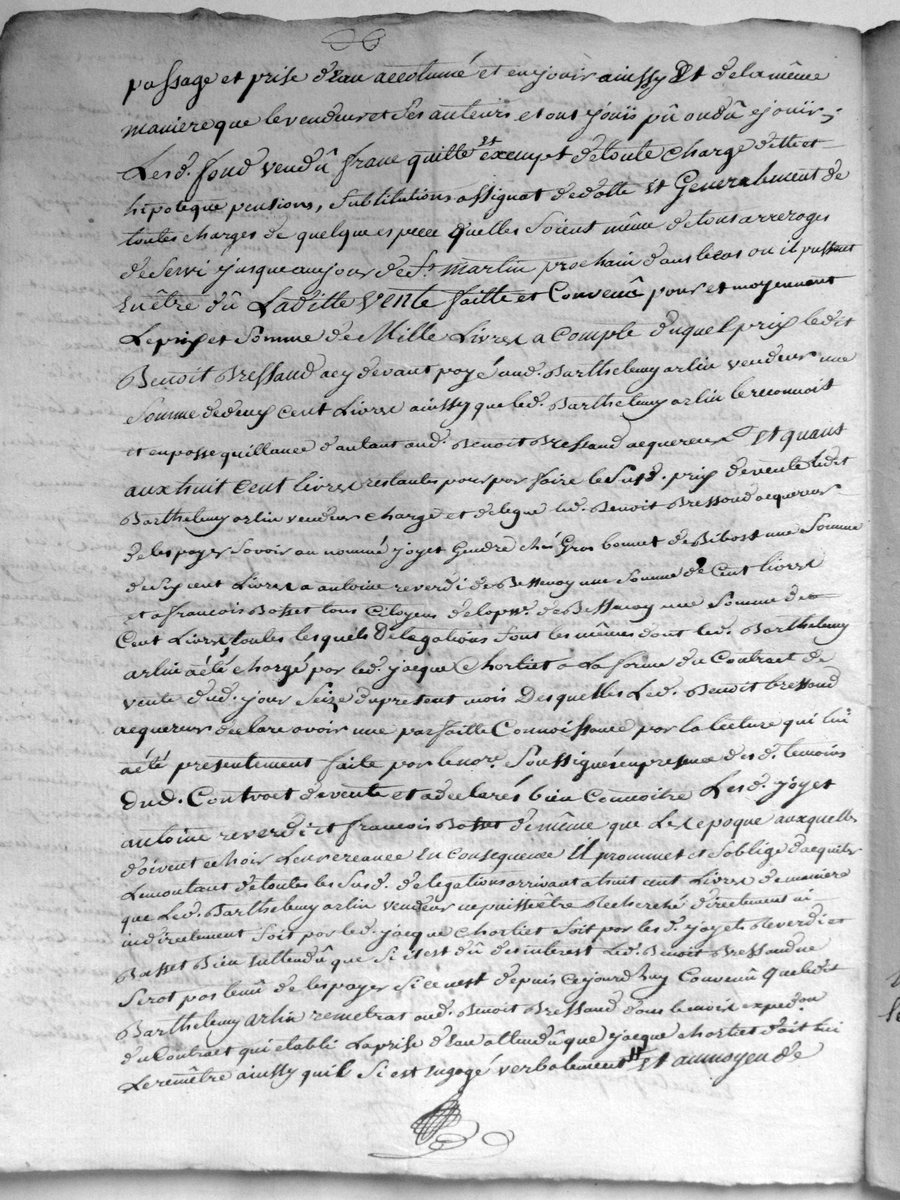 passage et prise d'eau accotumé et en jouir ainssy Et de la même
maniere que le vendeur et ses auteurs et ont joüis pû ou dû e joüir;
Lesd. fond vendû franc quitte et exempt de toute charge dette et
hipoteque pensions, Subtitutions assignat de dotte Et Generalement de
toutes charges de quelque espece quelles soient même de tous arreroges
de Servi jusque au jour de St. Martin prochain dans le cas ou il put
En être dû Laditte Vente faitte et Convenû pour et moyennent
Le prix et Somme de Mille Livres a Compte duquel prix ledit
Benoit Bressand a cy devant payé aud. Barthelemy arlin vendeur une
Somme de deux cent Livres ainssy que led. Barthelemy arlin le reconnoit
et en passe quittance d'autant aud. Benoit Bressand acquereur Et quant
aux huit cent livres restantes pour par faire le Susd. prix de vente ledit
Barthelemy arlin vendeur charge et delegue led. Benoit Bressand acquereur
de les payer Savoir au nommé joyet Gendre ché Gros bonnet de Bibost une Somme
de Six cent Livres a antoine reverdi de Bessenay une Somme de Cent livres
et a francois Basset tous Citoyens de la pss. de Bessenay une Somme de
Cent Livres, toutes lesquels Délegations Sont les mêmes dont led. Barthelemy
arlin a été chargé par led. jacque Chortiet a La forme du Contract de
vente dud. jour Seize du present mois Desquelles Led. Benoit bressand
acquereur declare avoir une parfaitte Connoissance par la lecture qui lui
a été presentement faite par le nore. Soussigné en presence desd. temoins
Dud. Contract de vente et a declarés bien Connoitre Lesd. joyet
antoine reverdi et francois Basset de même que Les epoque auxquelles
doivent echoir Leur creance En Consequence Il prommet et S'oblige d'acquiter
Le montant de toutes les Susd. delegations arrivant a huit cent Livres de maniere
que Led. Barthelemy arlin vendeur ne puisse être Recherché directement ni
indirectement Soit par led. jacque Chortiet Soit par lesd. joyet, Reverdi et
Basset Bien Entendû que Si il est dû des interest Led. Benoit Bressand ne
Serat pas tenû de les payer Si ce n'est depuis ce jourd'huy Convenû que ledit
Barthelemy arlin remetrat aud. Benoit Bressand dans le mois expedon.
du Contract qui etabli La prise d'Eau attendû que jacque Chortiet doit lui
Le remêtre ainssy quil Si est Engagé verbalement Et au moyen de